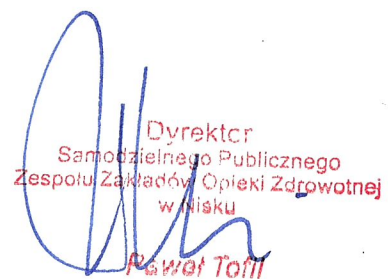 Dyrektor
Samodzielnego Publicznego
Zespołu Zakładów Opieki Zdrowotnej
w Nisku
Paweł Tofil